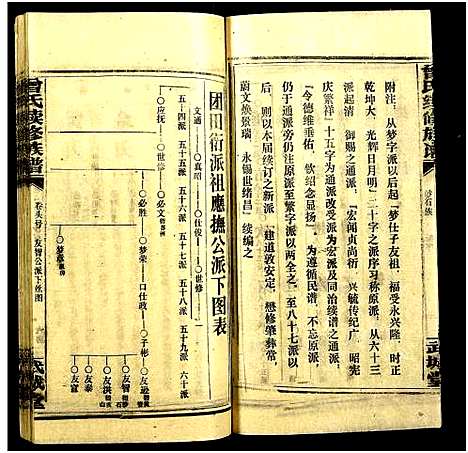 曾氏续修族谱
附注：从梦字派以后起「梦仕子友祖，福受永兴隆，时正
乾坤大，光辉日月明」二十字之派序习称原派，从六十三
派起清御赐之通派，「宏闻贞尚衍，兴毓传纪广，昭宪
庆繁祥」十五字为通派改受派为宏派及同治续谱之通派，
「令德维垂佑，钦绍念显扬」，为遵循民谱，不忘原派，
仍于通派旁仍注原派至繁字派以两全之，至八十七派
后，则以本届续订之新派「建道敦安定，懋修肇彝常，
蔚文焕景瑞，永锡世绪昌」续编之
武城堂
曾氏续修族谱
卷头号
友智公派下丝图
武城堂
团田衍派祖应抚公派下图表
五十四派 五十五派 五十六派 五十七派 五十八派 五十九派 六十派
文通
贞绍
仕俊
世修
应抚
世修
必胜
必荣
梦荣
仕政
子彬
友逊
友智
友洪
友泰
友富